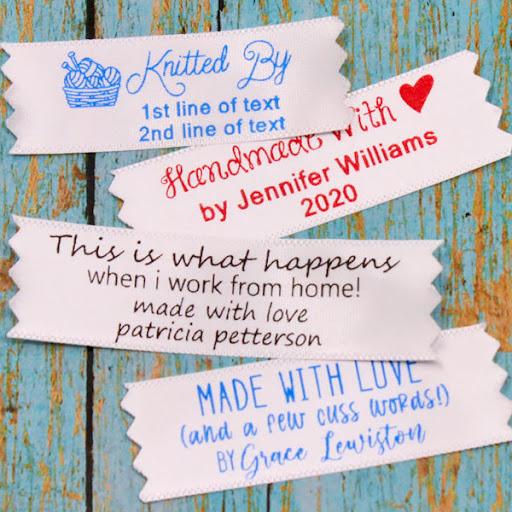 Knitted By
1st line of text
2nd line of text
Handmade With
by Jennifer Williams
2020
This is what happens
when i work from home!
made with love
patricia petterson
MADE WITH LOVE
(and a few cuss words!)
BY Grace Lewiston